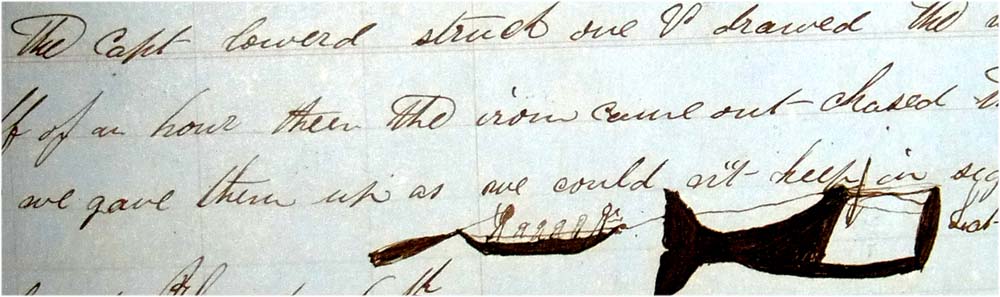 The Capt lowerd struck one & drawed the
lf of an hour then The iron came out chased
we gave them up as we could n't keep in sig
Lat